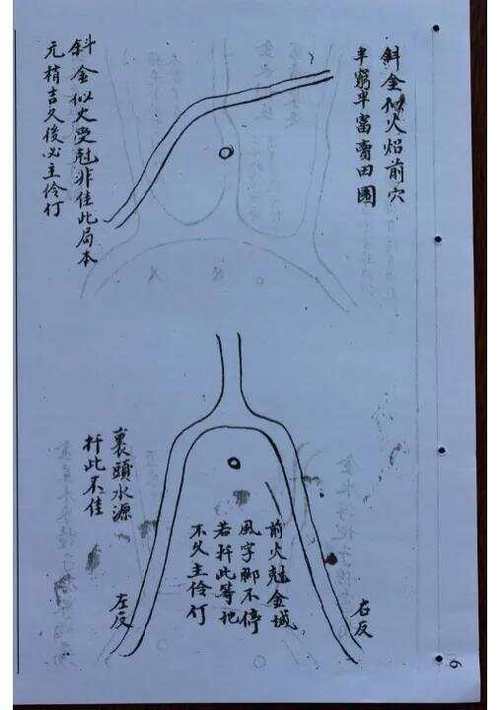 斜金似火焰前穴
半窮半富賣田園
斜金似火受尅非佳此局本
元稍吉久後必主伶仃
前火尅金城
風字腳不停
若扦此等地
不久主伶仃
裹頭水源
扦此不佳
右反
左反
6